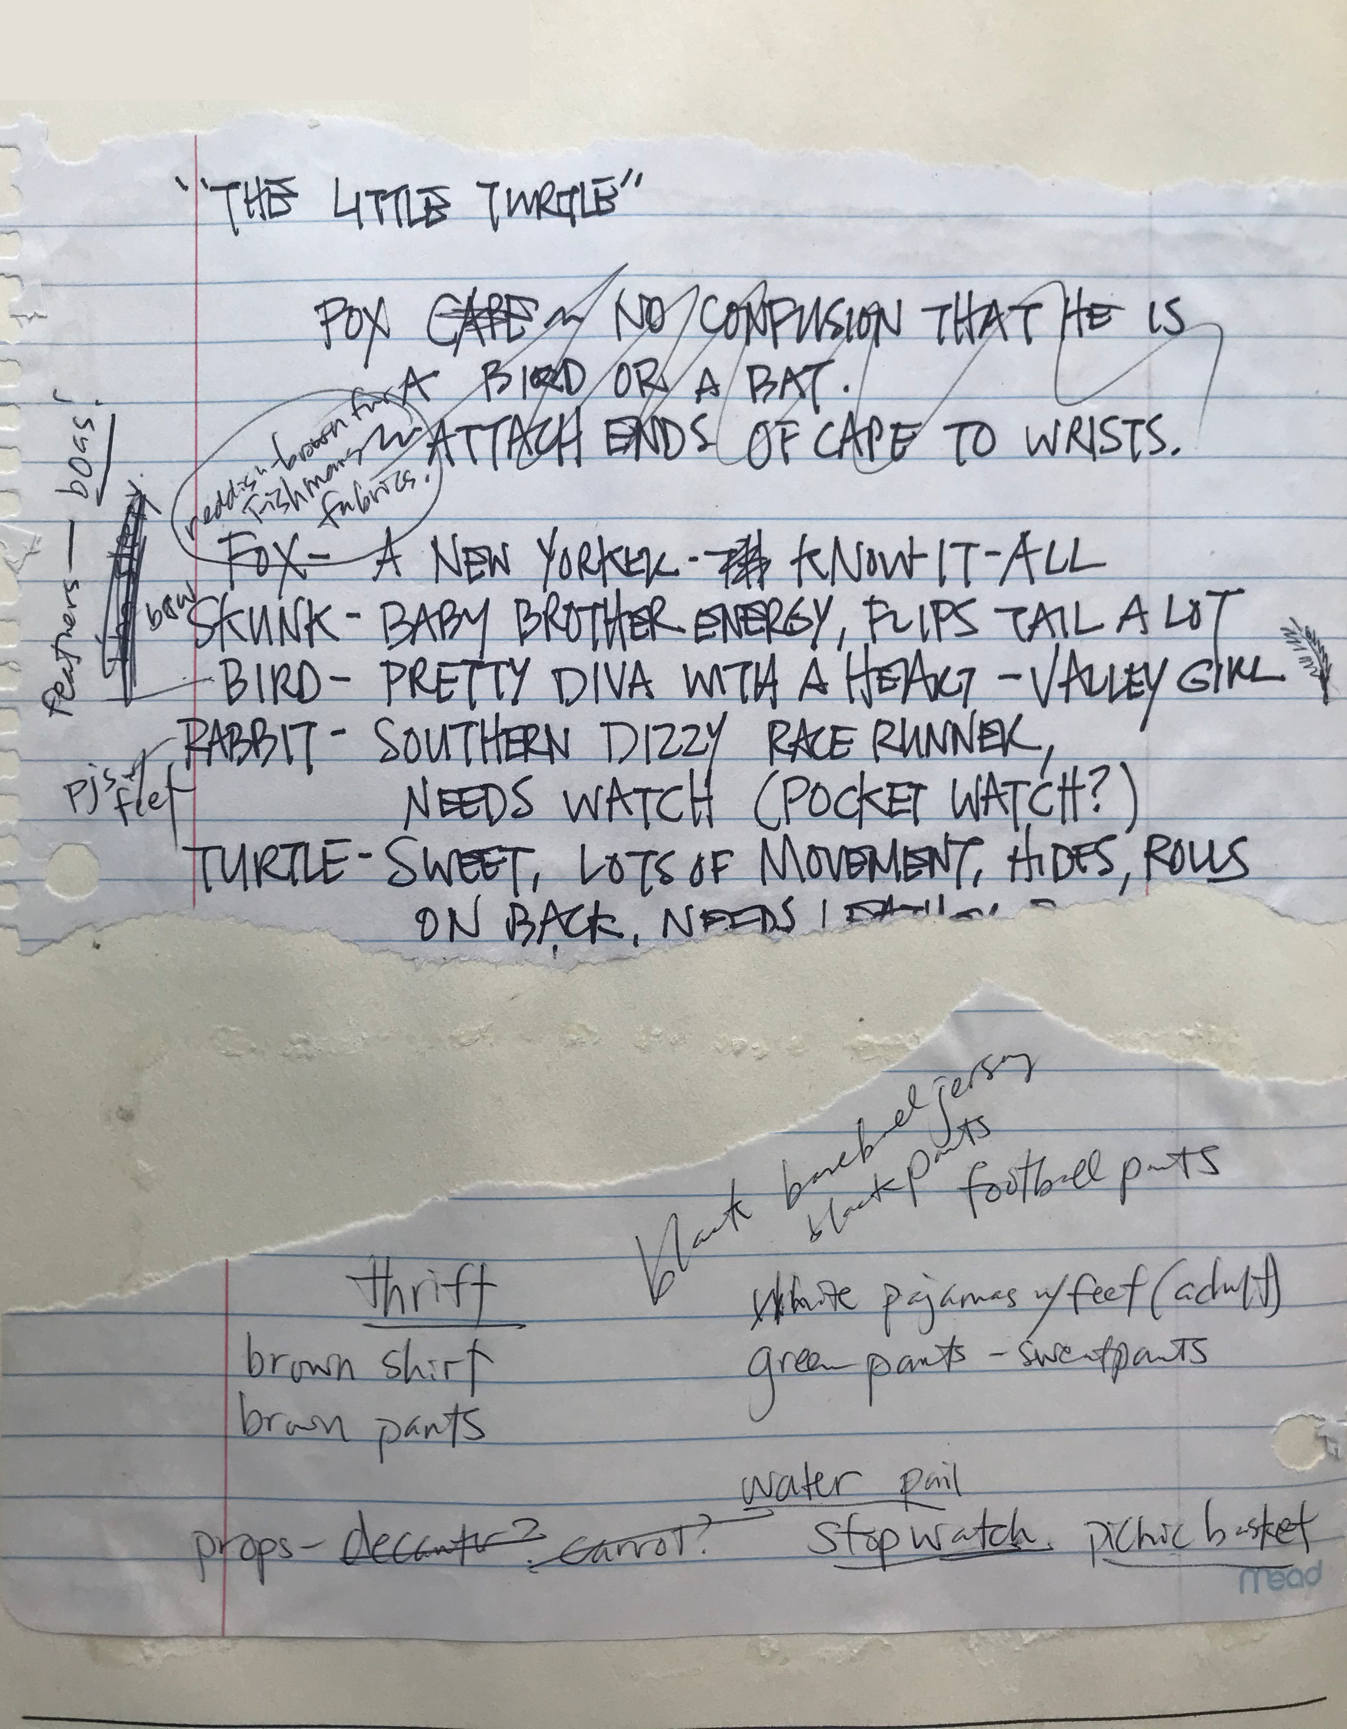 "THE LITTLE TURTLE"
FOX CAPE — NO CONFUSION THAT HE IS
A BIRD OR A BAT.
ATTACH ENDS OF CAPE TO WRISTS.
reddish-brown fur
fabrics.
feathers — boas!
FOX - A NEW YORKER - KNOW-IT-ALL
b&w
SKUNK - BABY BROTHER ENERGY, FLIPS TAIL A LOT
BIRD - PRETTY DIVA WITH A HEART - VALLEY GIRL
RABBIT - SOUTHERN DIZZY RACE RUNNER,
pj's w/
feet
NEEDS WATCH (POCKET WATCH?)
TURTLE - SWEET, LOTS OF MOVEMENT, HIDES, ROLLS
ON BACK, NEEDS
black baseball jersey
black pants
football pants
thrift
white pajamas w/ feet (adult)
brown shirt
green pants - sweatpants
brown pants
water pail
props - decanter? carrot? stopwatch. picnic basket
Mead